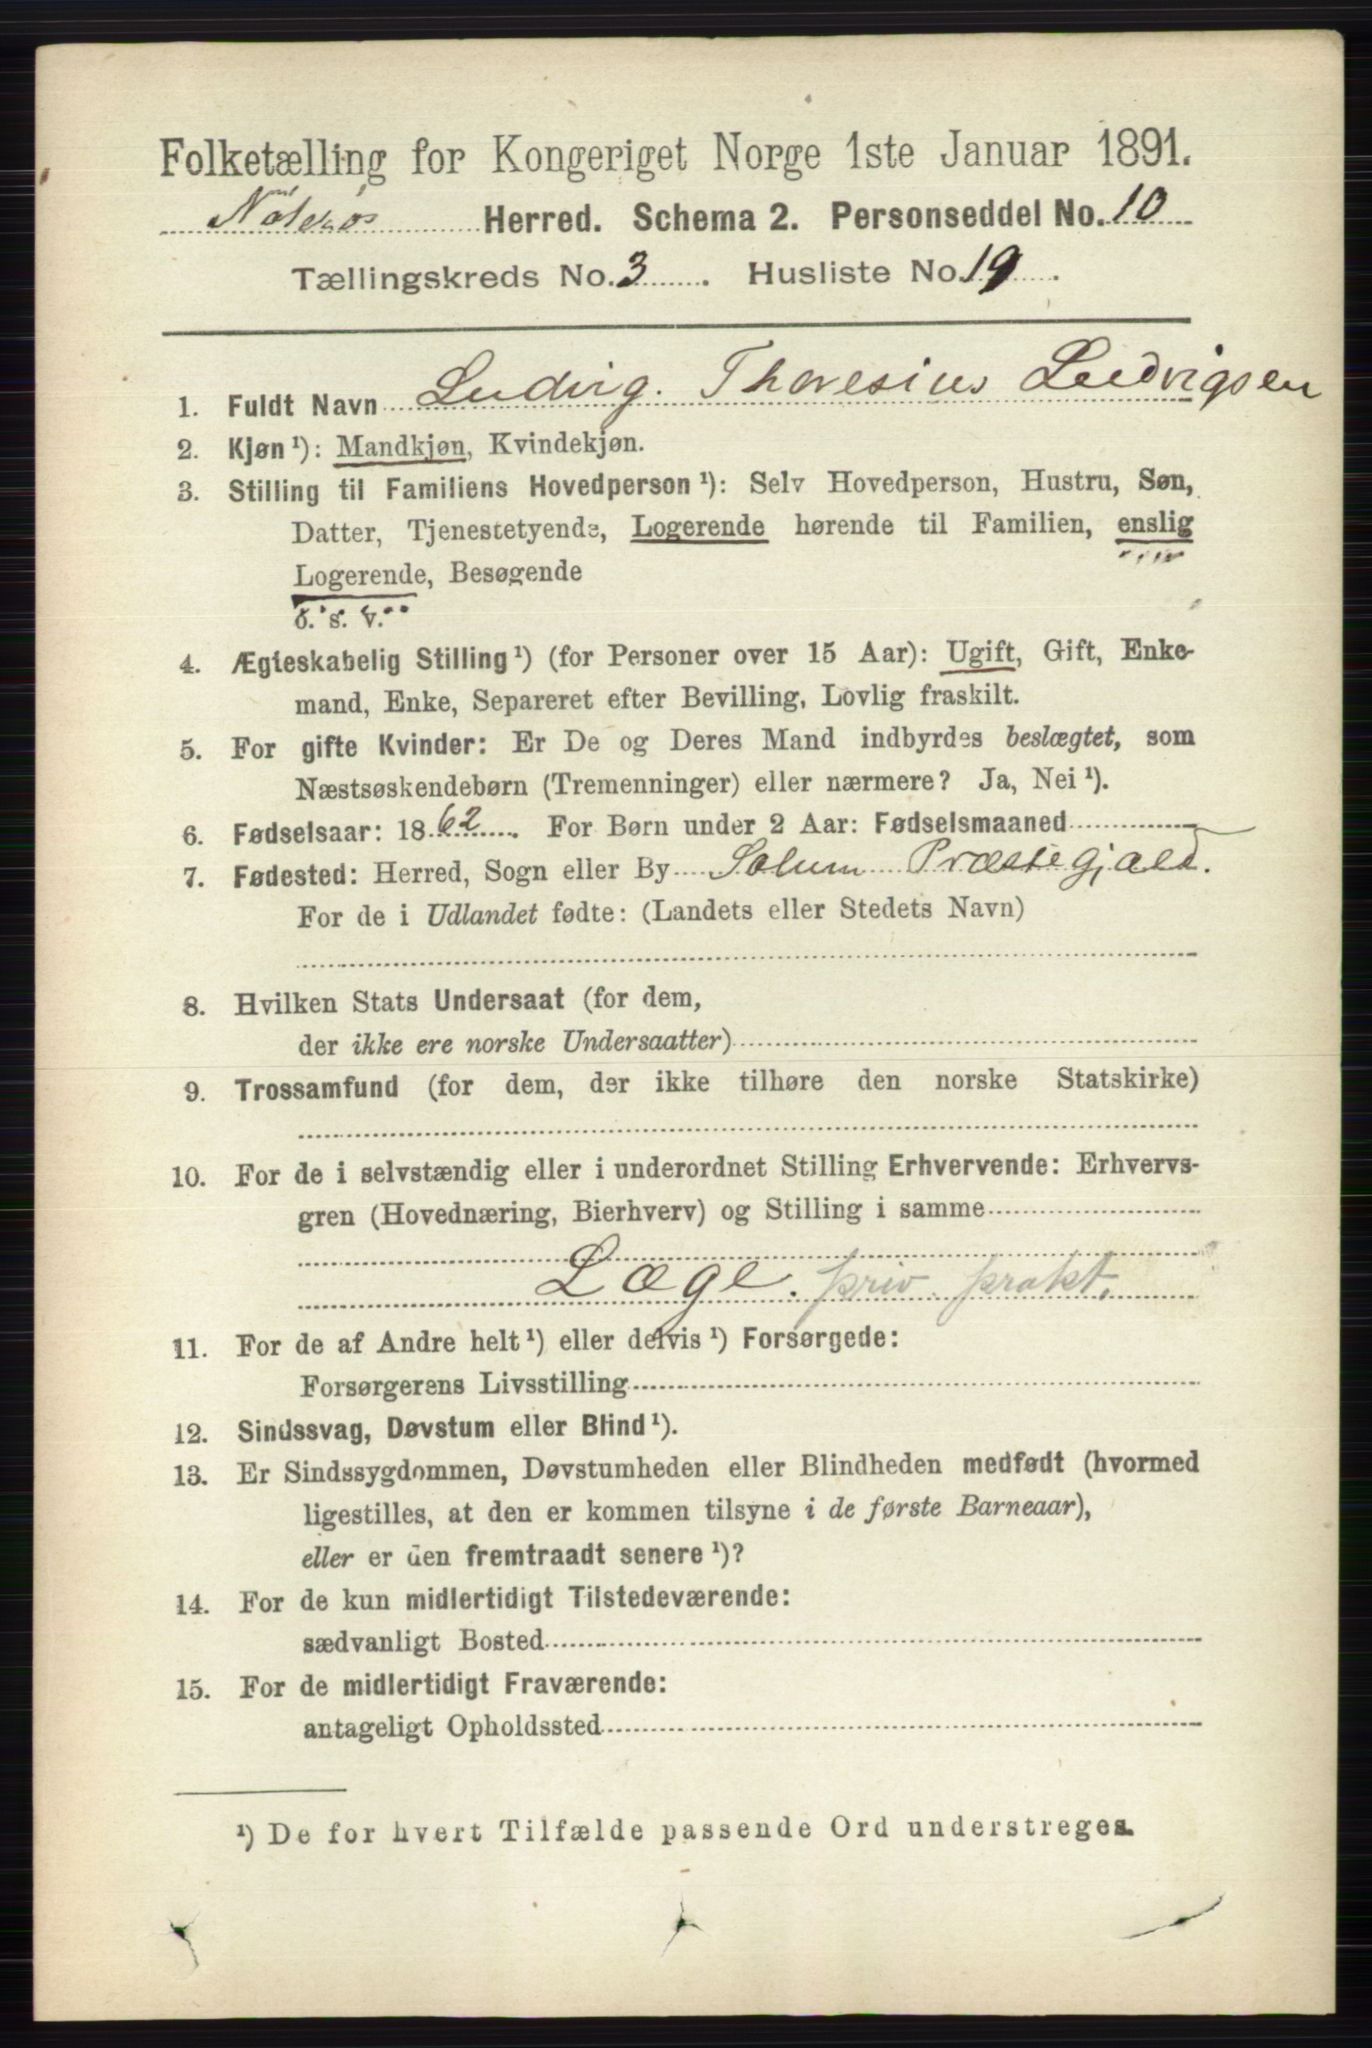 Folketælling for Kongeriget Norge 1ste Januar 1891.
Nøterø Herred. Schema 2. Personseddel No. 10
Tællingskreds No. 3. Husliste No. 19.
1. Fuldt Navn Ludvig. Thoresius Ludvigsen
2. Kjøn ¹): Mandkjøn, Kvindekjøn.
3. Stilling til Familiens Hovedperson ¹): Selv Hovedperson, Hustru, Søn,
Datter, Tjenestetyende, Logerende hørende til Familien, enslig
Logerende, Besøgende
o. s. v.
4. Ægteskabelig Stilling ¹) (for Personer over 15 Aar): Ugift, Gift, Enke-
mand, Enke, Separeret efter Bevilling, Lovlig fraskilt.
5. For gifte Kvinder: Er De og Deres Mand indbyrdes beslægtet, som
Næstsøskendebørn (Tremenninger) eller nærmere? Ja, Nei ¹).
6. Fødselsaar: 1862. For Børn under 2 Aar: Fødselsmaaned
7. Fødested: Herred, Sogn eller By Solum Præstegjæld.
For de i Udlandet fødte: (Landets eller Stedets Navn)
8. Hvilken Stats Undersaat (for dem,
der ikke ere norske Undersaatter)
9. Trossamfund (for dem, der ikke tilhøre den norske Statskirke)
10. For de i selvstændig eller i underordnet Stilling Erhvervende: Erhvervs-
gren (Hovednæring, Bierhverv) og Stilling i samme
Læge. priv. prakt.
11. For de af Andre helt ¹) eller delvis ¹) Forsørgede:
Forsørgerens Livsstilling
12. Sindssvag, Døvstum eller Blind ¹).
13. Er Sindssygdommen, Døvstumheden eller Blindheden medfødt (hvormed
ligestilles, at den er kommen tilsyne i de første Barneaar),
eller er den fremtraadt senere ¹)?
14. For de kun midlertidigt Tilstedeværende:
sædvanligt Bosted
15. For de midlertidigt Fraværende:
antageligt Opholdssted
¹) De for hvert Tilfælde passende Ord understreges.